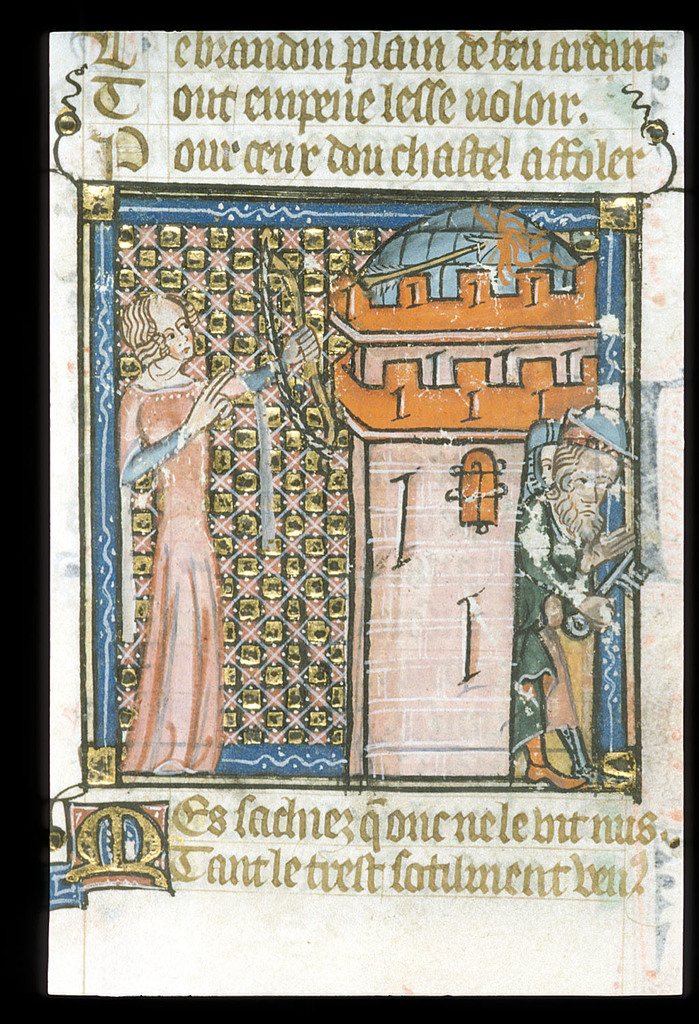 L e brandon plain de feu ardant
T out empene lesse voloir.
P our ceux dou chastel affoler
M Es sachiez q̃ onc ne le vit nus.
T ant le trest sotilment ven9